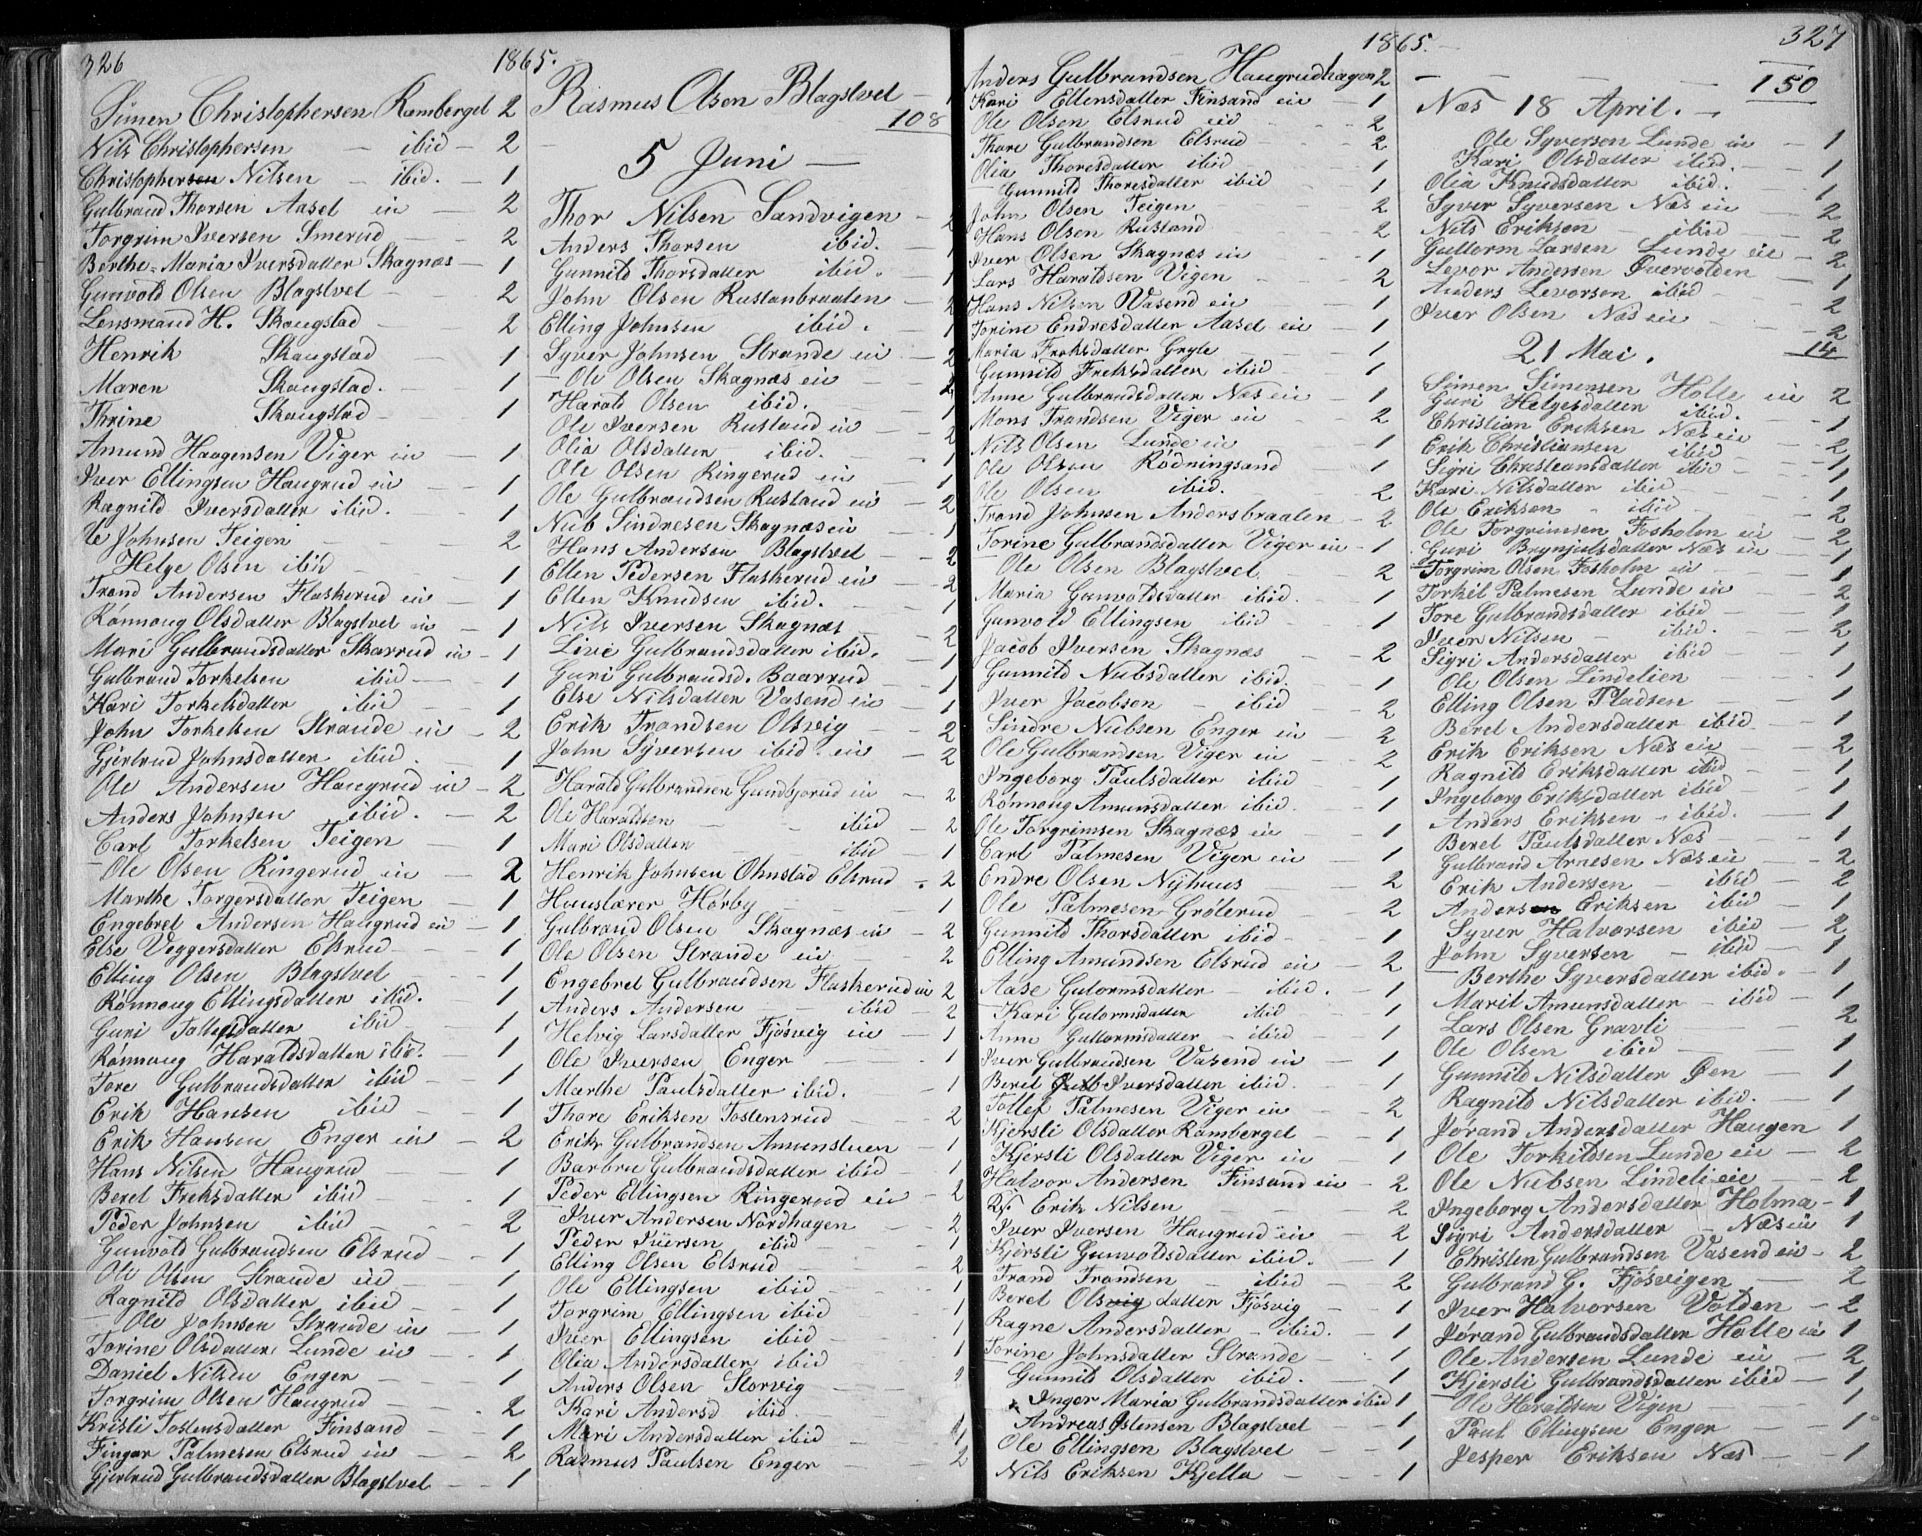 326
1865.
Simen Christophersen Ramberget 2
Nils Christophersen - ibid - 2
Christophersen Nilsen - ibid. - 1
Gulbrand Thorsen Aasel ei - 2
Torgrim Iversen Smerud - 2
Berthe-Maria Iversdatter Skagnæs - 1
Gunvold Olsen Blagstvet - 2
Lensmand H. Skaugstad - 2
Henrik Skaugstad 1
Maren Skaugstad. 1
Thrine Skaugstad 1
Amund Haagensen Viger ei - 1
Iver Ellingsen Haugrud ei - 1
Ragnild Iversdatter ibid. - 1
Ole Johnsen Teigen 2
Helge Olsen ibid 1
Trond Andersen Flaskerud ei - 1
Rönnoug Olsdatter Blagstvet ei - 1
Mari Gulbrandsdatter Skarrud ei - 1
Gulbrand Torkelsen ibid - 1
Kari Torkelsdatter ibid 1
John Torkelsen Strande ei - 2
Gjertrud Johnsdatter ibid. 1
Ole Andersen Haugrud ei - 2
Anders Johnsen ibid. - 2
Carl Torkelsen Teigen 1
Ole Olsen Ringerud ei 2
Marthe Torgersdatter Teigen - 1
Engebret Andersen Haugrud ei - 1
Else Veggersdatter Elsrud - 1
Elling Olsen Blagstvet 1
Rönnoug Ellingsdatter ibid. 1
Guri Tollefsdatter ibid 1
Rönnoug Haraldsdatter ibid. 1
Tore Gulbrandsdatter ibid - 1
Erik Hansen ibid - 1
Erik Hansen Enger ei - 2
Hans Nilsen Haugrud - 1
Beret Eriksdatter ibid - 1
Peder Johnsen ibid - 2
Gunvold Gulbrandsen Elsrud - 1
Ole Olsen Strande ei - 1
Ragnild Olsdatter ibid - 1
Ole Johnsen Strande ei - 1
Torine Olsdatter Lunde ei - 1
Daniel Nilsen Enger 1
Torgrim Olsen Haugrud - 2
Kristi Tostensdatter Finsand - 1
Fingar Palmesen Elsrud ei - 2
Gjertrud Gulbrandsdatter Blagstvet - 1
Rasmus Olsen Blagstvet - 1
108
5 Juni -
Thor Nilsen Sandvigen - 2
Anders Thorsen ibid. 1
Gunnild Thorsdatter ibid. 1
John Olsen Rustanbraaten - 2
Elling Johnsen ibid. 1
Syver Johnsen Strande ei - 2
Ole Olsen Skagnæs ei - 2
Harald Olsen ibid. 1
Ole Iversen Rustand ei - 2
Olia Olsdatter ibid. 1
Ole Olsen Ringerud ei 1
Ole Gulbrandsen Rustand ei - 2
Nub Sindresen Skagnæs ei 1
Hans Andersen Blagstvet - 2
Ellen Pedersen Flaskerud ei 2
Ellen Knudsen ibid. 1
Nils Iversen Skagnæs 2
Live Gulbrandsdatter ibid. 1
Guri Gulbrandsd. Baarrud 1
Else Nilsdatter Vasend ei - 1
Erik Trondsen Olsvig - 2
John Syversen ibid ei - 2
Harald Gulbrandsen Gundbjorud ei - 2
Ole Haraldsen ibid 2
Mari Olsdatter ibid 1
Henrik Johnsen Ohnstad Elsrud - 2
Huuslærer Hörby 1
Gulbrand Olsen Skagnæs ei - 2
Ole Olsen Strande ei 2
Engebret Gulbrandsen Flaskerud ei 2
Anders Andersen ibid - 2
Helvig Larsdatter Fjösvig ei - 1
Ole Iversen Enger 1
Marthe Paulsdatter ibid. 1
Thore Eriksen Tostensrud - 2
Erik Gulbrandsen Amunstuen - 1
Barbru Gulbrandsdatter ibid 1
Peder Ellingsen Ringerud ei - 2
Iver Andersen Nordhagen - 2
Peder Iversen ibid 1
Elling Olsen Elsrud 2
Ole Ellingsen ibid 1
Torgrim Ellingsen ibid 1
Iver Ellingsen ibid 1
Olia Andersdatter ibid 1
Anders Olsen Storvig 2
Kari Andersd ibid
Mari Andersdatter ibid 1
Rasmus Paulsen Enger 2
1865.
Anders Gulbrandsen Haugrudhagen 2
Kari Ellensdatter Finsand ei - 1
Ole Olsen Elsrud ei - 2
Thore Gulbrandsen Elsrud - 2
Olia Thoresdatter ibid - 1
Gunnild Thoresdatter ibid 1
John Olsen Teigen 2
Hans Olsen Rustand 2
Iver Olsen Skagnæs ei 1
Lars Haraldsen Vigen 2
Hans Nilsen Vasend ei 1
Torine Endresdatter Aasel ei - 1
Maria Eriksdatter Gryte 1
Gunnild Eriksdatter ibid 1
Anne Gulbrandsdatter Næs ei - 1
Mons Trondsen Viger ei - 2
Nils Olsen Lunde ei 1
Ole Olsen Rödningsand 1
Ole Olsen ibid. 2
Trond Johnsen Andersbraaten - 2
Torine Gulbrandsdatter Viger ei - 1
Ole Olsen Blagstvet 2
Maria Gunvoldsdatter ibid. 1
Gunvold Ellingsen ibid 1
Jacob Iversen Skagnæs 2
Gunnild Nubsdatter ibid. 1
Iver Jacobsen - ibid 2
Sindre Nubsen Enger ei - 2
Ole Gulbrandsen Viger ei - 2
Ingeborg Paulsdatter ibid 1
Rönnoug Amunsdatter ibid. 1
Ole Torgrimsen Skagnæs ei - 1
Carl Palmesen Viger ei 1
Endre Olsen Nyhuus - 2
Ole Palmesen Grölerud 2
Gunnild Thorsdatter ibid 1
Elling Amundsen Elsrud ei 2
Aase Gutormsdatter - ibid. - 1
Kari Gutormsdatter ibid - 1
Anne Guttormsdatter - ibid - 1
Iver Gulbrandsen Vasend ei - 1
Beret Iversdatter ibid. 1
Tollef Palmesen Viger ei 2
Kjersti Olsdatter Ramberget 1
Kjersti Olsdatter Viger ei - 1
Halvor Andersen Finsand ei - 2
Erik Nilsen 2
Iver Iversen Haugrud ei - 2
Kjersti Gunvoldsdatter ibid. - 1
Trond Trondsen - ibid - 2
Beret Olsvig datter Fjösvig - 1
Ragne Andersdatter - ibid. 1
Torine Johnsdatter Strande - 1
Gunnild Olsdatter ibid. 1
Inger Maria Gulbrandsdatter ibid 1
Andreas Ostensen Blagstvet 1
Ole Ellingsen Blagstvet - 1
Nils Eriksen Kjella - 1
327
150
Næs 18 April. -
Ole Syversen Lunde ei - 1
Kari Olsdatter ibid. - 1
Olia Knudsdatter ibid. 1
Syver Syversen Næs ei 2
Nils Eriksen - ibid - 2
Guttorm Larsen Lunde ei - 2
Levor Andersen Övervolden 1
Anders Levorsen ibid 2
Iver Olsen Næs ei 2
14
21 Mai.
Simen Simensen Holte ei 2
Guri Helgesdatter ibid. 1
Christian Eriksen Næs ei 2
Erik Christiansen ibid 1
Sigri Christiansdatter ibid - 1
Kari Nilsdatter ibid 1
Ole Eriksen - ibid - 2
Ole Torgrimsen Fosholm ei - 2
Guri Brynjulsdatter Næs ei - 1
Torgrim Olsen Fosholm ei 1
Torkil Palmesen Lunde ei 2
Tore Gulbrandsdatter ibid - 1
Iver Nilsen - ibid. - 2
Sigri Andersdatter ibid 1
Ole Olsen Lindelien 1
Elling Olsen Pladsen 1
Beret Andersdatter ibid - 1
Erik Eriksen Næs ei 2
Ragnild Eriksdatter ibid - 1
Ingeborg Eriksdatter ibid - 1
Anders Eriksen - ibid. - 1
Beret Paulsdatter Næs 1
Gulbrand Arnesen Næs ei - 2
Erik Andersen - ibid - 2
Andersen Eriksen ibid - 1
Syver Halvorsen ibid 2
John Syversen - ibid - 1
Berthe Syversdatter ibid. - 1
Marit Amunsdatter - ibid - 1
Lars Olsen Gravli 2
Ole Olsen ibid 1
Gunnild Nilsdatter Öen 1
Ragnild Nilsdatter ibid. - 1
Jörand Andersdatter Haugen 1
Ole Torkildsen Lunde ei - 2
Ole Nubsen Lindeli ei - 2
Ingeborg Andersdatter Holma - 1
Sigri Andersdatter - Næs ei 1
Christen Gulbrandsen Vasend ei - 2
Gulbrand G. Fjösvigen - 2
Iver Halvorsen Volden - 2
Jörand Gulbrandsdatter Holte ei 1
Ole Andersen Lunde ei - 2
Kjersti Gulbrandsdatter ibid - 1
Ole Haraldsen Vigen 1
Paul Ellingsen Enger 1
Jesper Eriksen Næs - 1